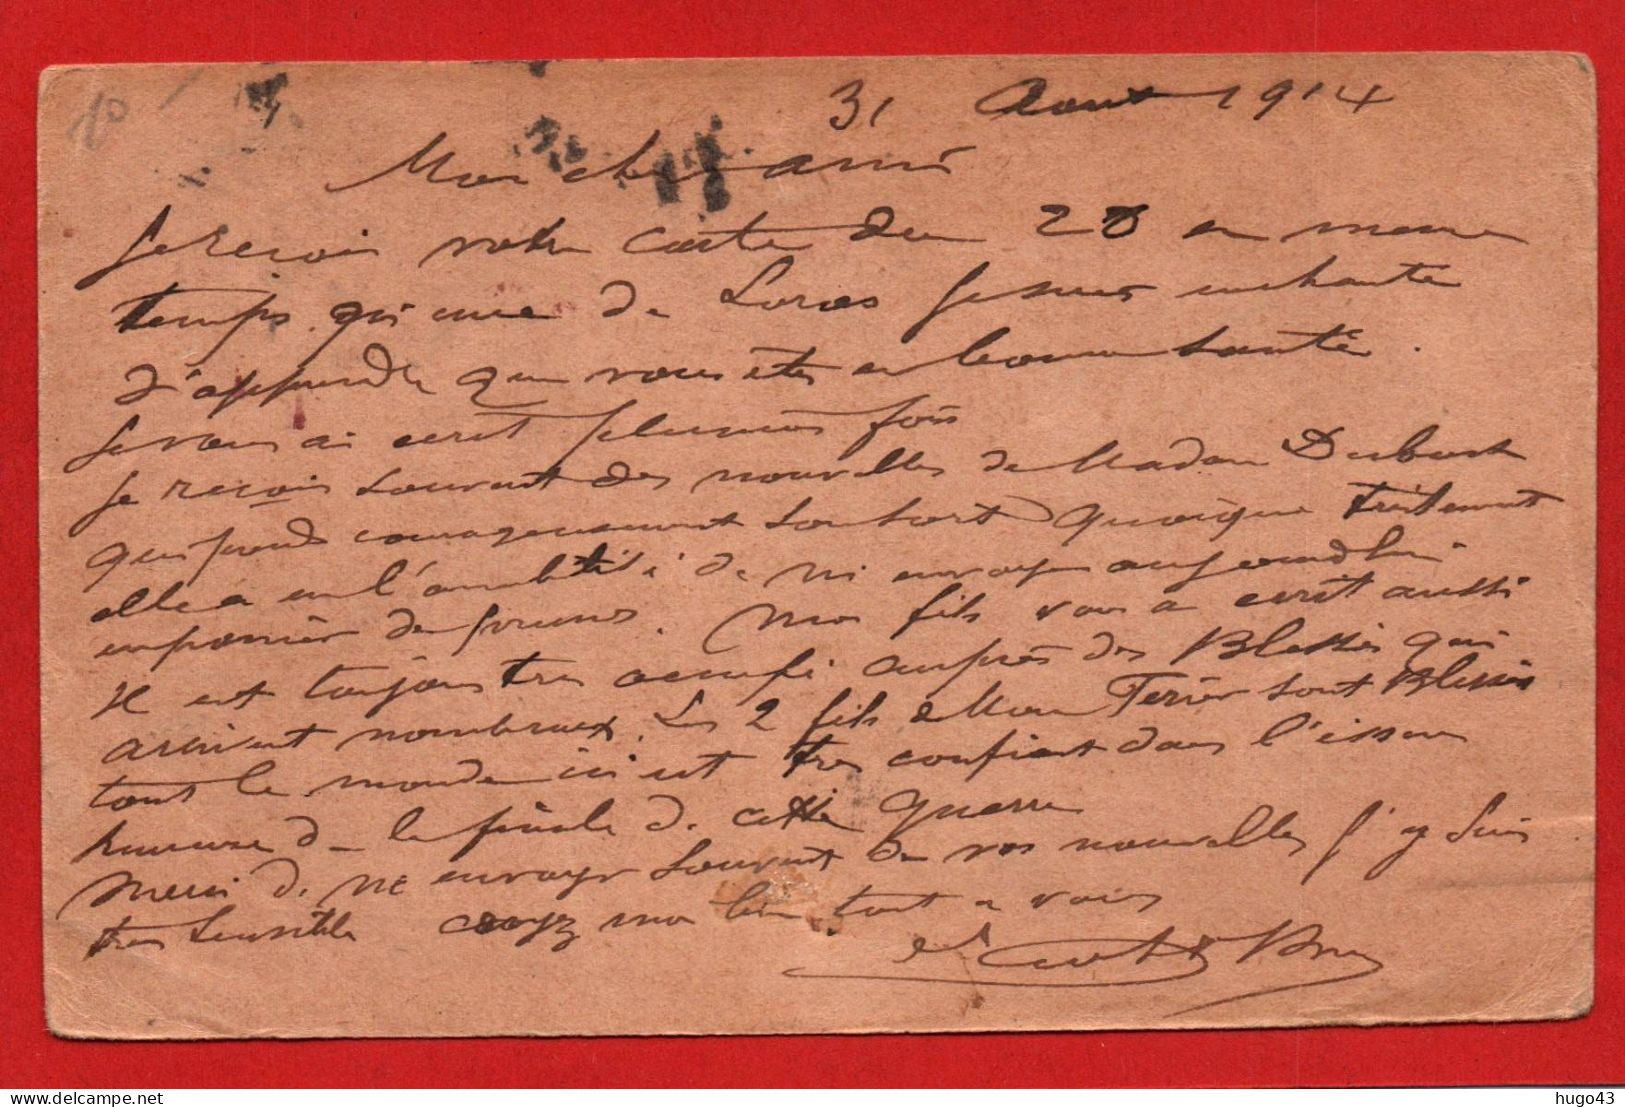 10
31 Aout 1914
Mon cher ami
Je recois votre carte du 28 en meme
temps qu'une de Je suis enchanté
d'apprendre que vous etes en bonne santé.
Je vous ai ecrit plusieurs fois
Je recois souvent des nouvelles de Madame Dubust
qui prend courageusement son sort quoique tristement
elle a eu l'amabilité de m'envoyer aujourd'hui
un panier de prunes. Mon fils vous a ecrit aussi
Il est toujours tres occupé auprès des Blessés qui
arrivent nombreux. Les 2 fils de Mon Terier sont Blessés
tout le monde ici est tres confiant dans l'issue
heureuse de la de cette guerre
Merci de me envoyer souvent de vos nouvelles j'y suis
tres sensible croyez moi bien tout a vous
hugo43
delcampe.net